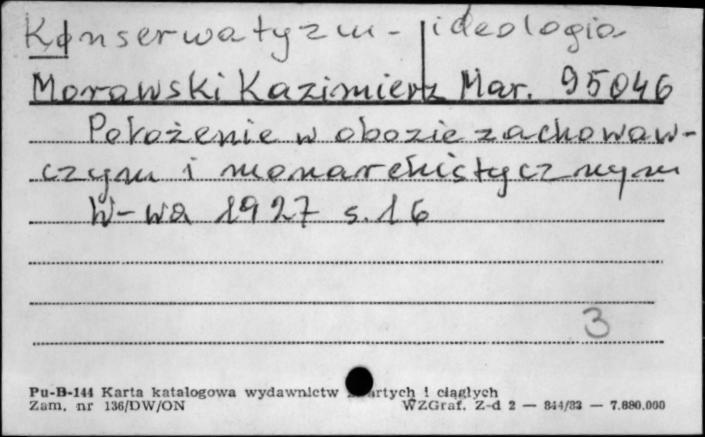 Konserwatyzm - ideologia
Morawski Kazimierz Mar. 95046
Położenie w obozie zachowaw-
czym i monarchistycznym
W-wa 1927 s. 16
3
Pu-B-144 Karta katalogowa wydawnictw zwartych i ciągłych
Zam. nr 136/DW/ON WZGraf. Z-d 2 — 844/83 — 7.880.000